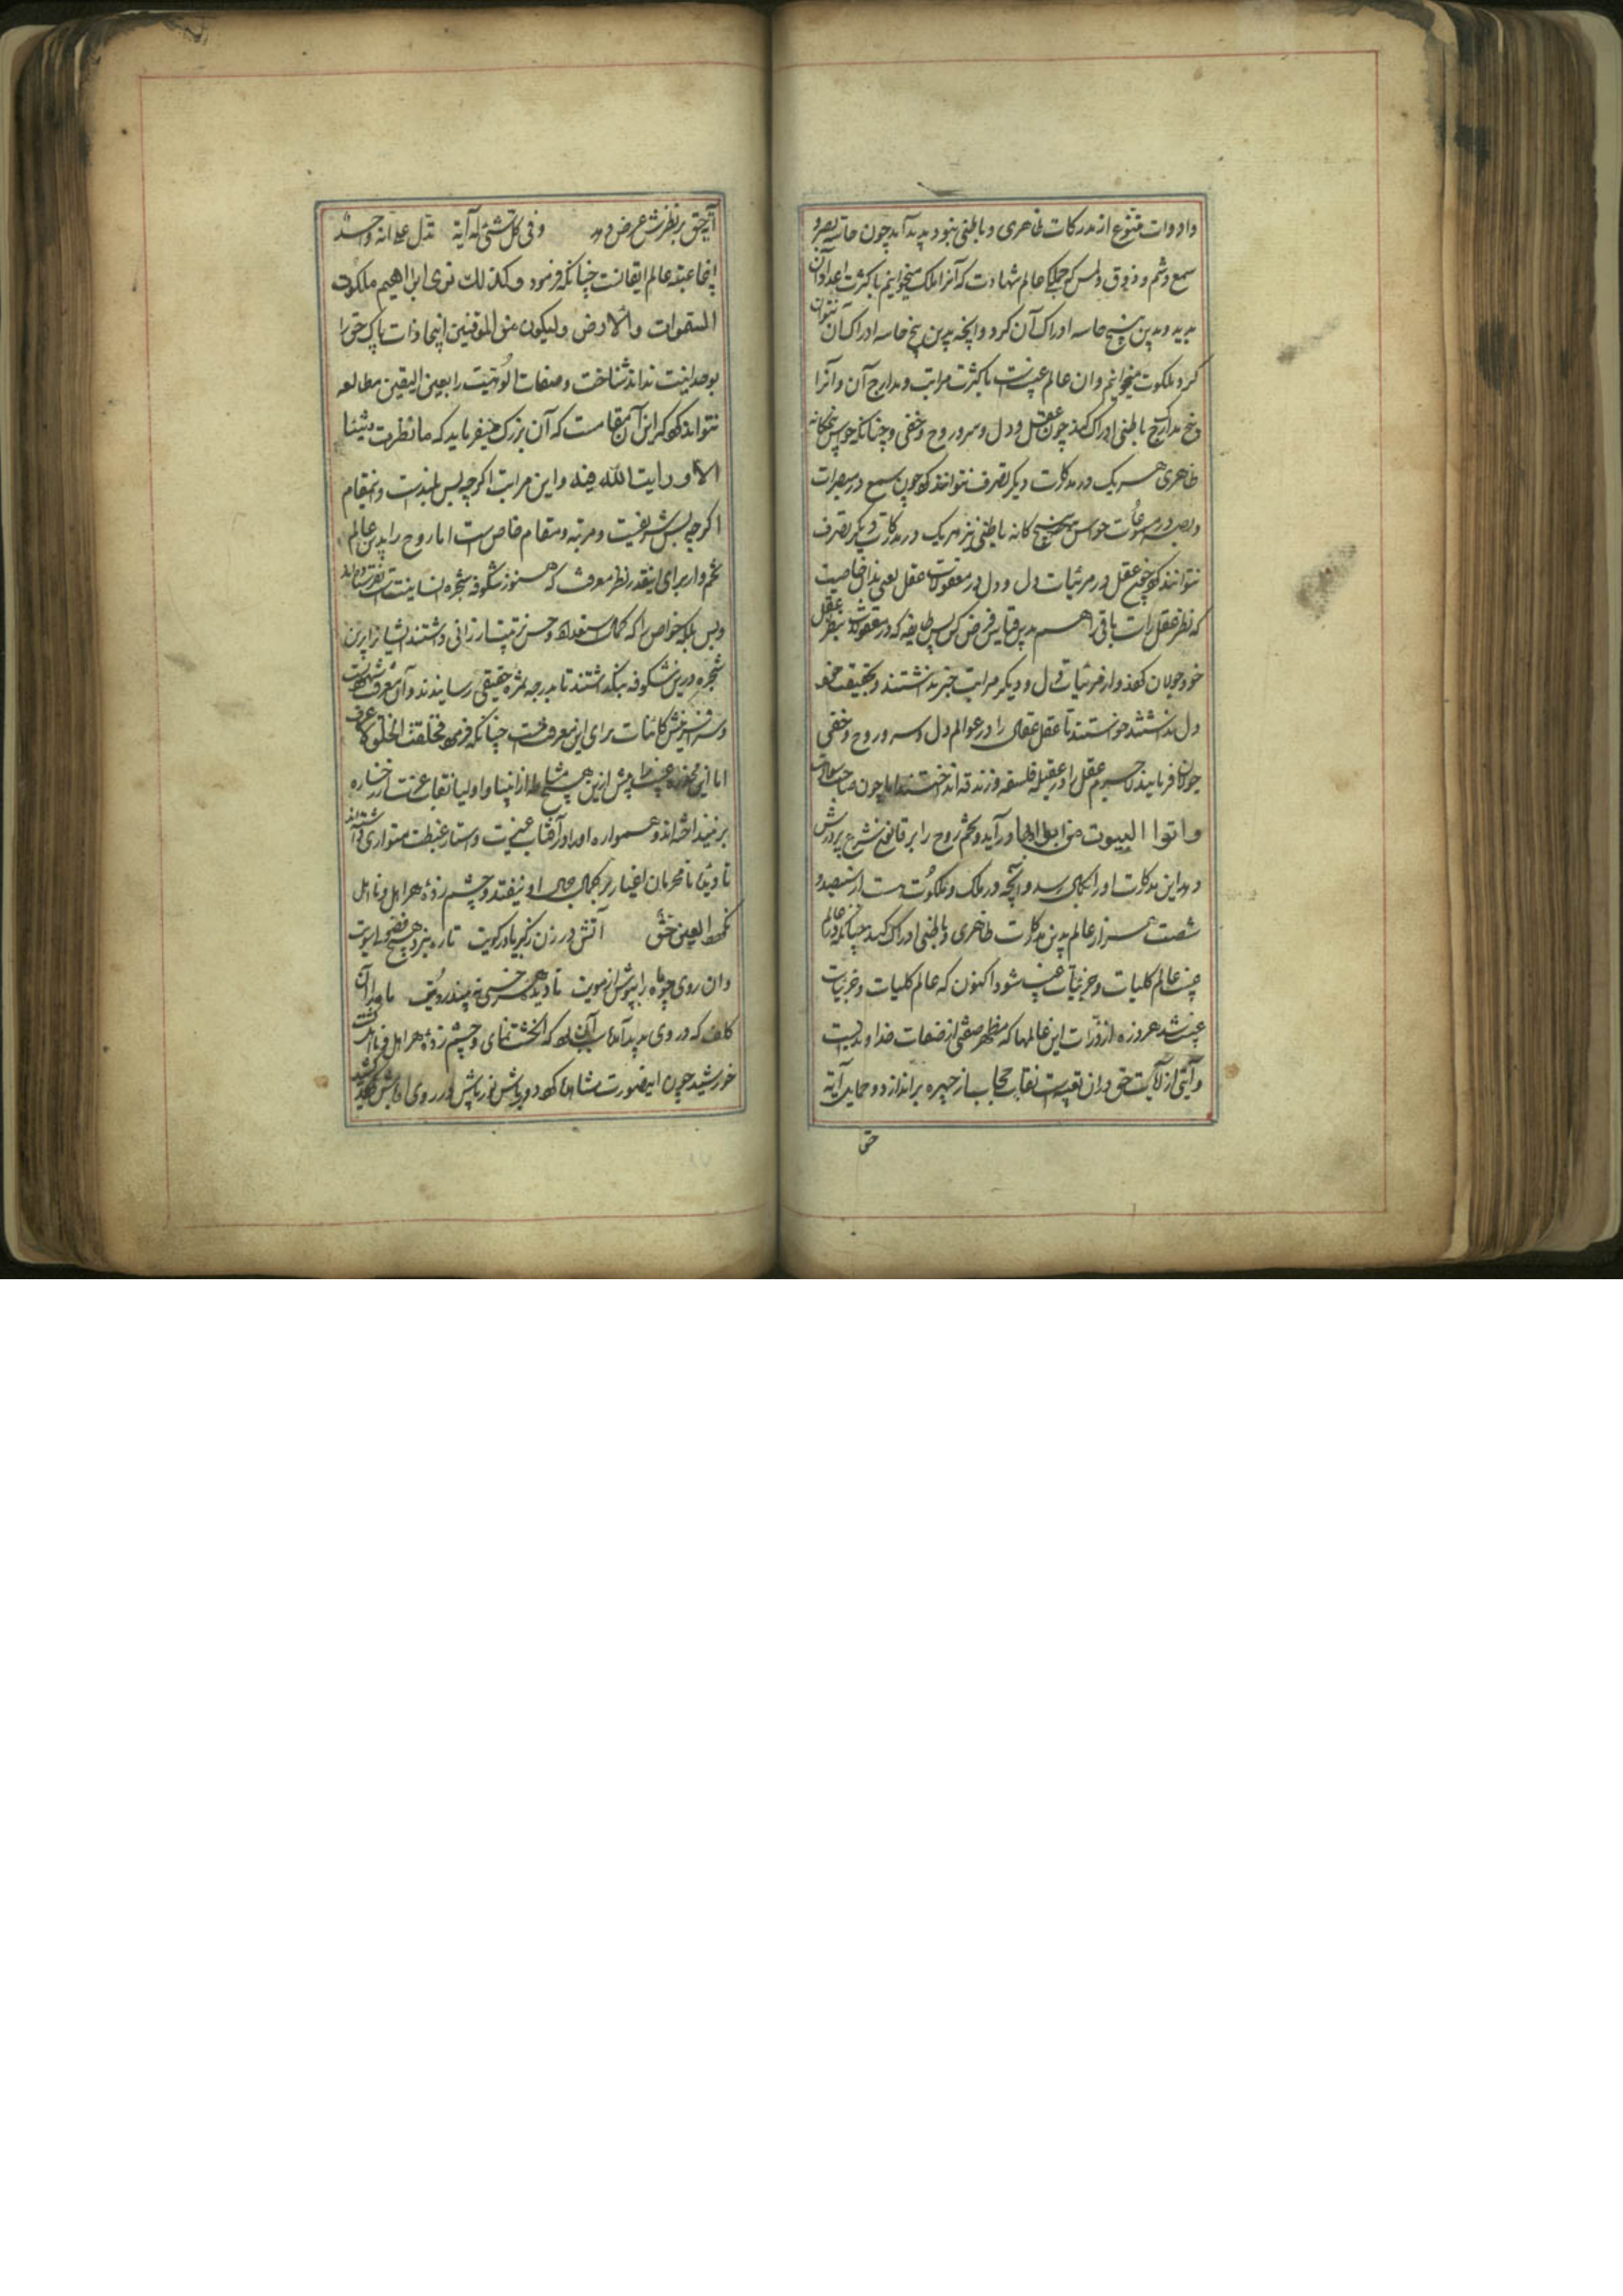 وادوات متنوع از مدرکات ظاهری و باطنی نبود پدید آمد چون حاسه بصر و
سمع و شم و ذوق ولمس که جملکی عالم شهادت که آنرا ملک میخوانیم با کثرت اعداد آن
بدید و بدین پنج حاسه ادراک آن کرد و آنچه بدین پنج حاسه ادراک آن نتوان
کرد ملکوت میخوانیم وان عالم غیبست با کثرت مراتب و مدارج آن و آنرا
پنج مدرک باطنی ادراک کند چون عقل و دل و سر و روح و خفی و چنانکه حواس پنجکانه
ظاهری هریک در مدرکات دیکر تصرف نتوانند کرد چون سمع در مبصرات
وبصر در مسموعات حواس پنج کانه باطنی نیز هریک در مدرکات دیکر تصرف
نتوانند کرد چون عقل در مرئیات دل و دل در معقولات عقل
که نظر عقل راست باقی را هم بدین قیاس فرض کن پس طایفه که در معقولات بنظر عقل
خود جولان کردند و از مرئیات دل و دیکر مراتب خبر نداشتند و بحقیقت خود
دل نداشتند خواستند تا عقل عقال را در عوالم دل و سر و روح و خفی
جولان فرمایند لاجرم عقل را در عقیله فلسفه و زندقه انداختند اما چون صاحب سعادت
واتوا البیوت من ابوابها در آید و تخم روح را بر قانون شرع پرورش
دهد این مدرکات او را بکمال رسد و آنچه در ملک و ملکوتست از سیصد و
شصت هزار عالم بدین مدرکات ظاهری و باطنی ادراک کند چنانکه در عالم
غیب عالم کلیات و جزئیات غیب شود اکنون که عالم کلیات و جزئیات
غیب شد هر ذره از ذرات این عالمها که مظهر صفتی از صفات خداوندیست
و آیتی از آیات حق دران تعبیه است نقاب حجاب از چهره براندازد و جمال آیة
حق
آیة حق بر نظرش عرض دهد وفی کل شئی له آیة تدل علی انه واحد
اینجا عتبه عالم ایقانست چنانکه فرمود وکذلك نری ابراهیم ملکوت
السموات والارض ولیکون من الموقنین اینجا ذات پاک حق را
بوحدانیت نداند شناخت وصفات الوهیت را بعین الیقین مطالعه
تواند کرد که این آن مقامست که آن بزرک میفرماید که ما نظرت شیئا
الا ورایت الله فیه واین مراتب اکرچه بس بلندست و مقام
اکرچه بس شریفیست و مرتبه و مقام خاص است اما روح را بدین عالم
تخم وار برای اینقدر نظر معرفت که هنوز شکوفه شجره انسانیتست نفرستاده اند
وبس بلکه خواص را که کمال استعداد و حسن تربیت ارزانی داشتند نشاید ازین
شجره درین شکوفه بنکداشتند تا بدرجه ثمره حقیقی رسانیدند وآن معرفت شهودیست
وسر آفرینش کائنات برای این معرفت چنانکه فرمود فخلقت الخلق لاعرف
اما این مخدره غیب را پیش ازین هیچ مشاطه از انبیا و اولیا نقاب عزت از رخساره
برنینداخته اند و همواره او را در قباب غیرت و استار غبطت متواری داشته اند
تا دیده نامحرمان اغیار بر کمال جمال او نیفتد و چشم زده هر اهل و نااهل
نکردد العین حق آتش در زن زکبریا در کویت تا ره نبرد هیچ فضولی سویت
وان روی چو ماه را بپوش از مویت تا دیده هر خسی نبیند رویت ماه را آن
کلف که در روی بدید آمد سبب آن بود که انکشت نمای و چشم زده هر اهل و نااهل کشت
خورشید چون این صورت مشاهده کرد دورباش نورباش در روی اوباش کشید